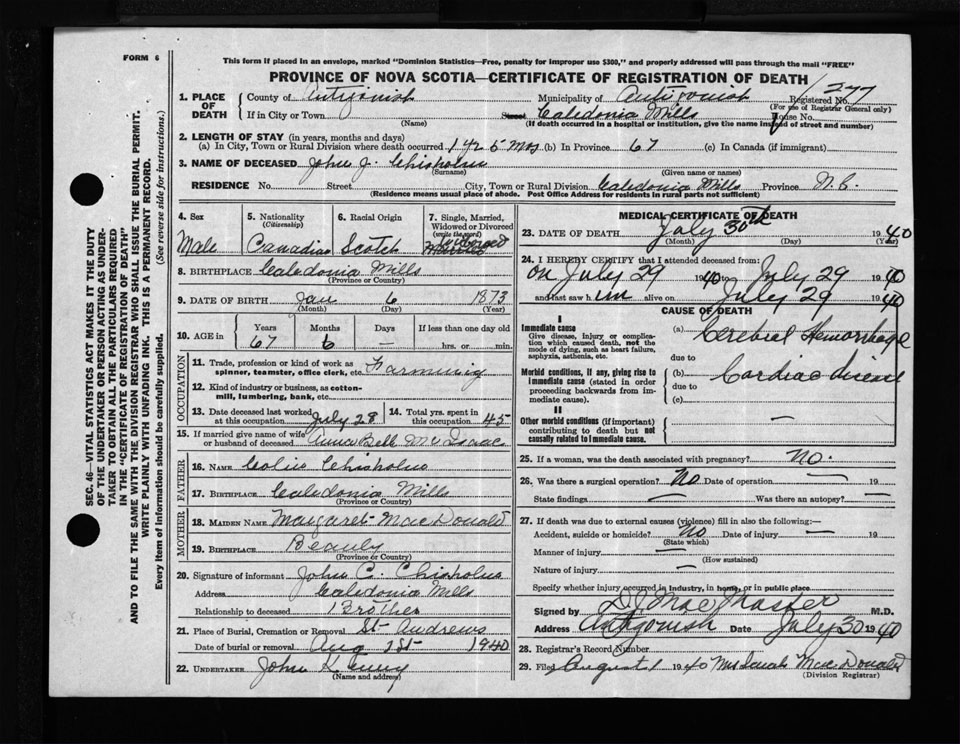 FORM 6
This form if placed in an envelope, marked "Dominion Statistics—Free, penalty for improper use $300," and properly addressed will pass through the mail "FREE"
PROVINCE OF NOVA SCOTIA—CERTIFICATE OF REGISTRATION OF DEATH
1. PLACE OF DEATH
County of Antigonish Municipality of Antigonish Registered No. 277
(For use of Registrar General only)
If in City or Town (Name) Street Caledonia Mills House No.
(If death occurred in a hospital or institution, give the name instead of street and number)
2. LENGTH OF STAY (in years, months and days)
(a) In City, Town or Rural Division where death occurred 5 Mos (b) In Province 67 (c) In Canada (if immigrant)
3. NAME OF DECEASED John J. Chisholm
(Surname) (Given name or names)
RESIDENCE No. Street City, Town or Rural Division Caledonia Mills Province N.S.
(Residence means usual place of abode. Post Office Address for Residents in rural parts not sufficient)
4. Sex Male
5. Nationality (Citizenship) Canadian
6. Racial Origin Scotch
7. Single, Married, Widowed or Divorced (write the word) Married
8. BIRTHPLACE Caledonia Mills
(Province or Country)
9. DATE OF BIRTH Jan 6 1873
(Month) (Day) (Year)
10. AGE in Years Months Days If less than one day old
67 6 — hrs. or min.
OCCUPATION
11. Trade, profession or kind of work as spinner, teamster, office clerk, etc. Farming
12. Kind of industry or business, as cotton-mill, lumbering, bank, etc.
13. Date deceased last worked at this occupation July 28
14. Total yrs. spent in this occupation 45
15. If married give name of wife or husband of deceased Anna Bell McIsaac
FATHER
16. NAME Colin Chisholm
17. BIRTHPLACE Caledonia Mills
MOTHER
18. MAIDEN NAME Margaret MacDonald
19. BIRTHPLACE Beauly
(Province or Country)
20. Signature of informant John C. Chisholm
Address Caledonia Mills
Relationship to deceased Brother
21. Place of Burial, Cremation or Removal St Andrews
Date of burial or removal Aug 1st 1940
22. UNDERTAKER John Kenny
(Name and address)
MEDICAL CERTIFICATE OF DEATH
23. DATE OF DEATH July 30th 1940
(Month) (Day) (Year)
24. I HEREBY CERTIFY that I attended deceased from:
on July 29 1940 to July 29 1940
and last saw him alive on July 29 1940
CAUSE OF DEATH
I
Immediate cause
Give disease, injury or complication which caused death, not the mode of dying, such as heart failure, asphyxia, asthenia, etc.
(a) Cerebral Hemorrhage
due to
Morbid conditions, if any, giving rise to immediate cause (stated in order proceeding backwards from immediate cause).
(b) Cardiac disease
due to
(c)
II
Other morbid conditions (if important) contributing to death but not causally related to immediate cause. —
25. If a woman, was the death associated with pregnancy? No.
26. Was there a surgical operation? No Date of operation — 19
State findings — Was there an autopsy? —
27. If death was due to external causes (violence) fill in also the following:—
Accident, suicide or homicide? No Date of injury — 19
(State which)
Manner of injury —
(How sustained)
Nature of injury —
Specify whether injury occurred in industry, in home, or in public place
Signed by D J MacMaster M.D.
Address Antigonish Date July 30 1940
28. Registrar's Record Number
29. Filed August 1 1940 Mrs Sarah MacDonald
(Division Registrar)
SEC. 46—VITAL STATISTICS ACT MAKES IT THE DUTY
OF THE UNDERTAKER OR PERSON ACTING AS UNDER-
TAKER TO OBTAIN ALL THE PARTICULARS REQUIRED
IN THE "CERTIFICATE OF REGISTRATION OF DEATH"
AND TO FILE THE SAME WITH THE DIVISION REGISTRAR WHO SHALL ISSUE THE BURIAL PERMIT.
WRITE PLAINLY WITH UNFADING INK. THIS IS A PERMANENT RECORD.
Every item of information should be carefully supplied. (See reverse side for instructions.)